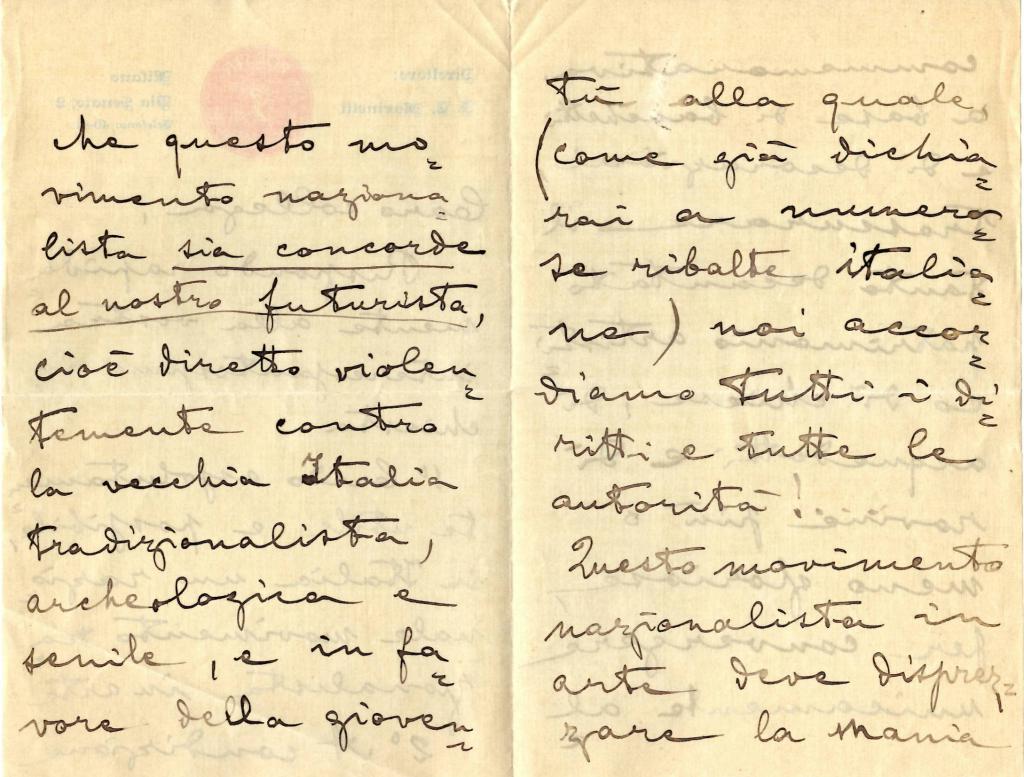 che questo mo=
vimento naziona=
lista sia concorde
al nostro futurista,
cioè diretto violen=
temente contro
la vecchia Italia
tradizionalista,
archeologica e
senile, e in fa=
vore della gioven=
tù alla quale,
(come già dichia=
rai a numero=
se ribalte italia=
ne) noi accor=
diamo tutti i di=
ritti e tutte le
autorità!
Questo movimento
nazionalista in
arte deve disprez=
zare la mania